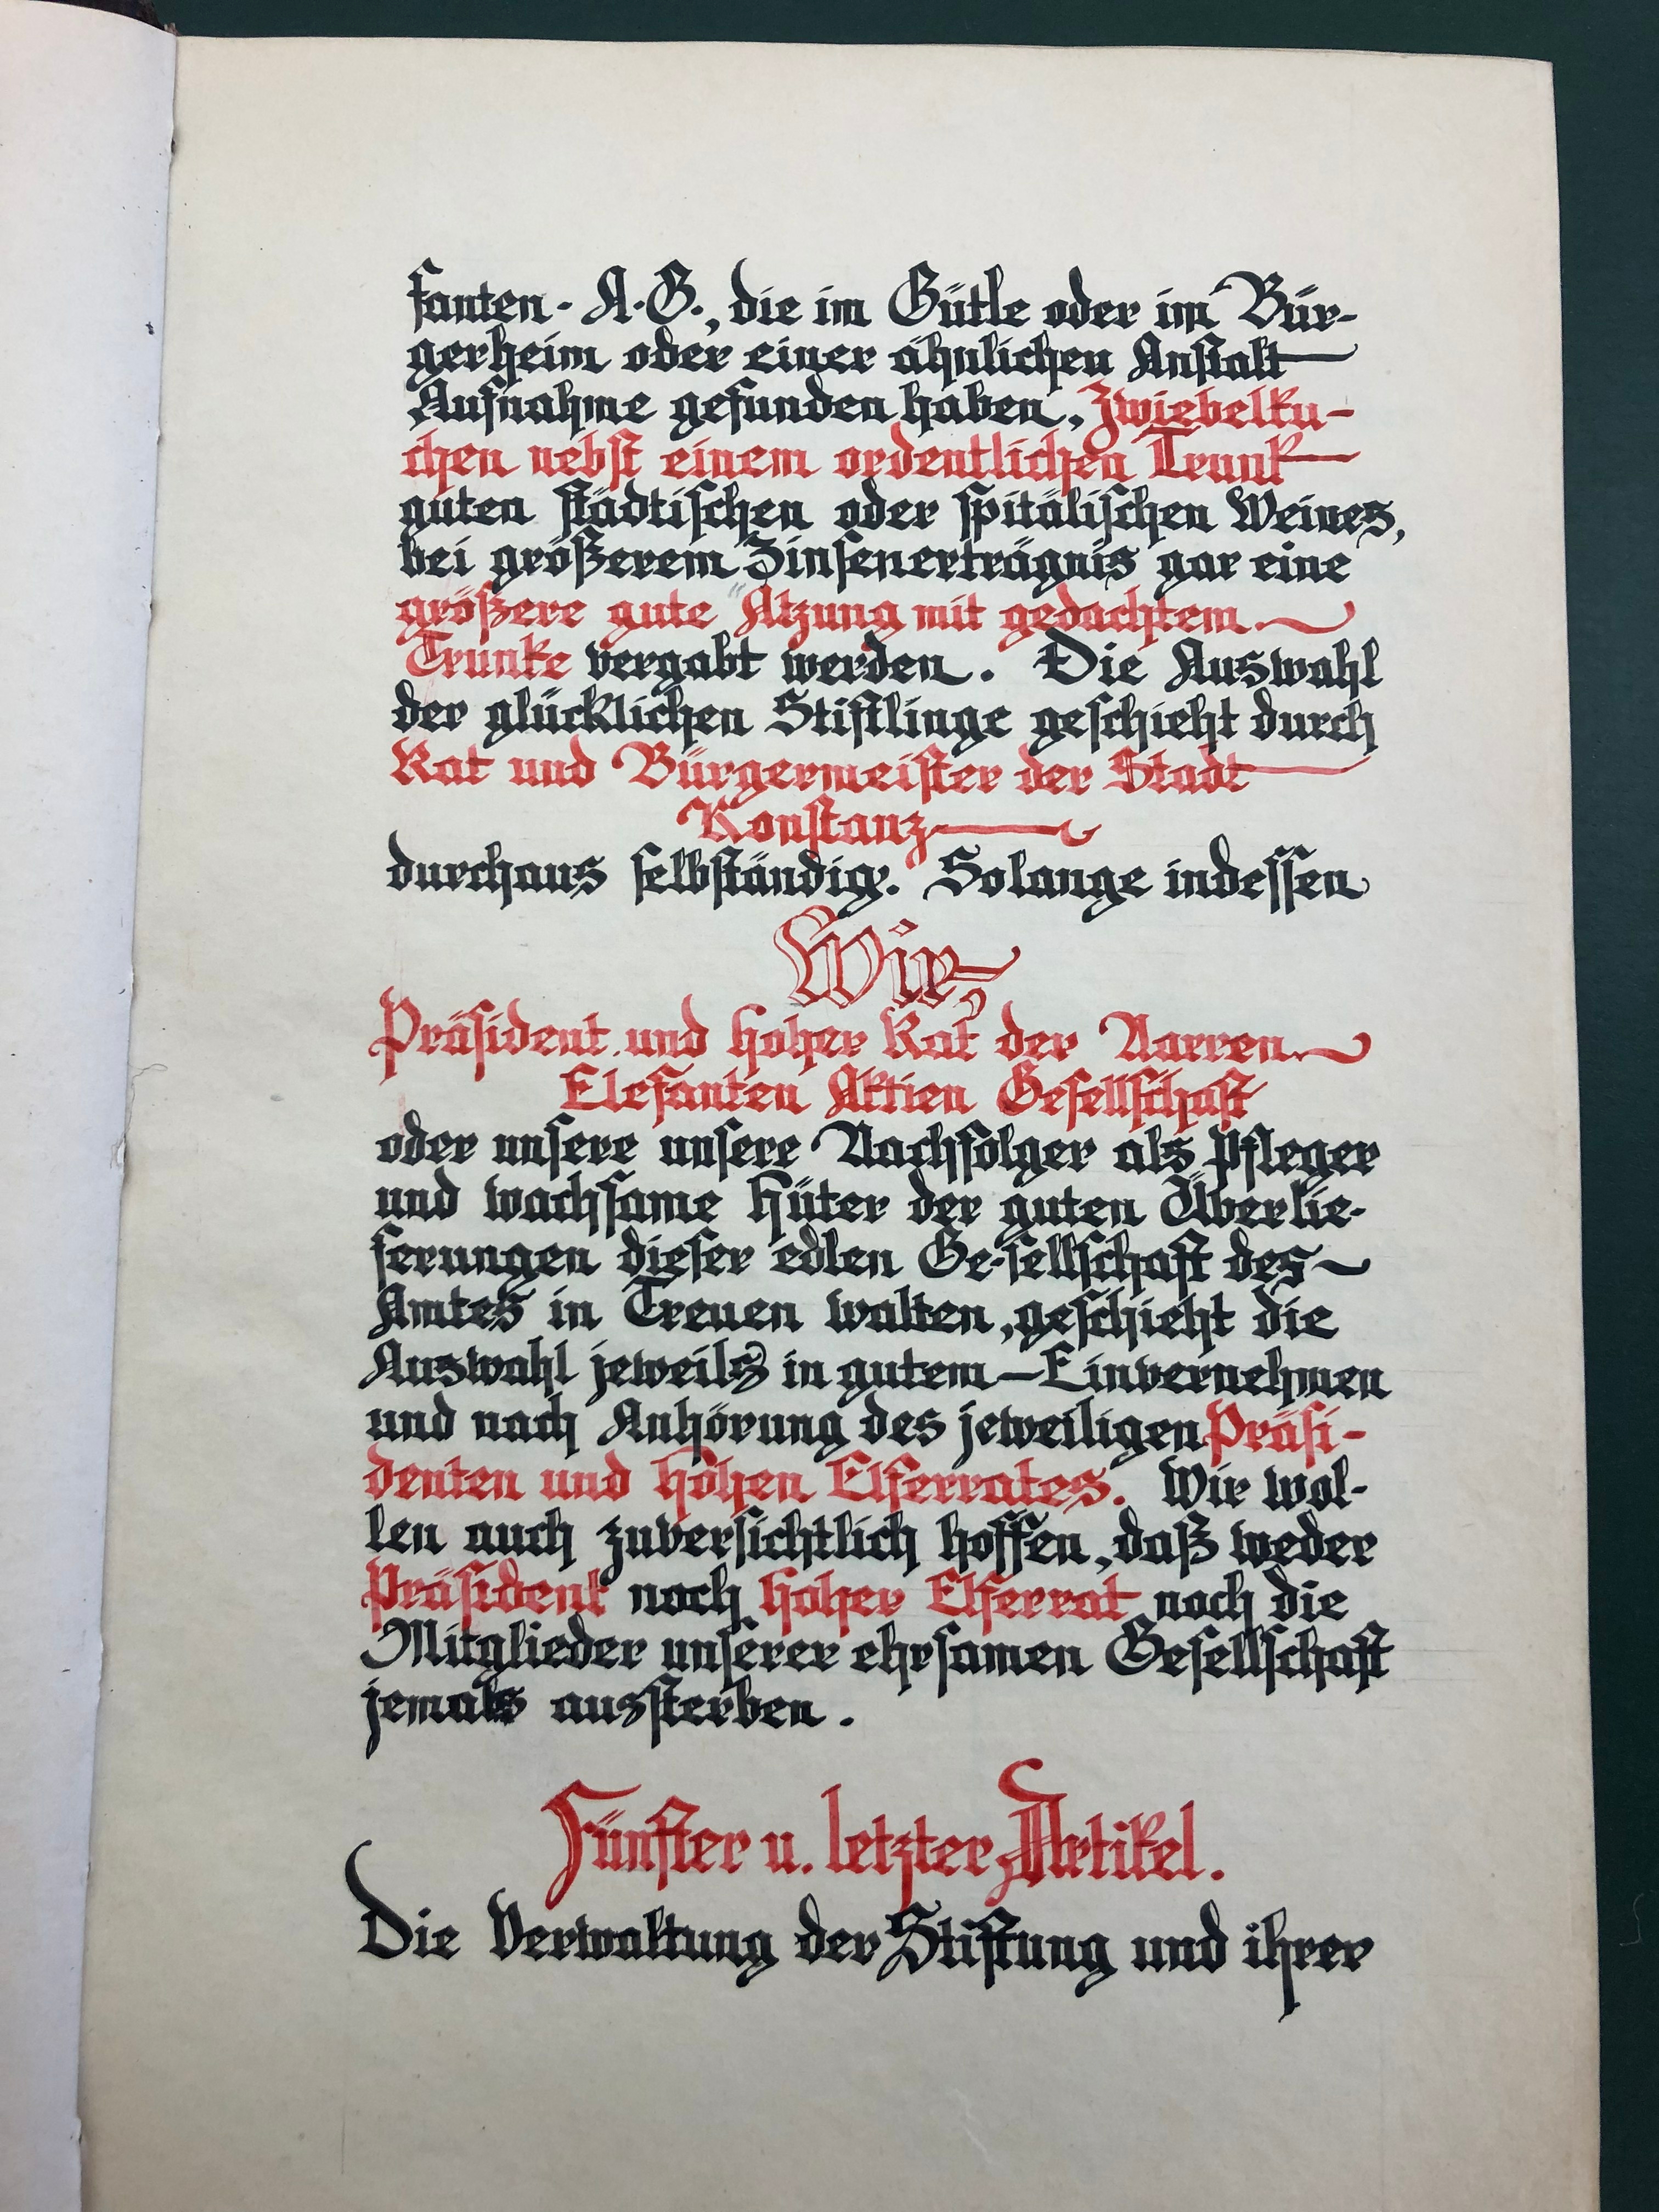 fanten-A.G., die im Gütle oder im Bür-
gerheim oder einer ähnlichen Anstalt
Aufnahme gefunden haben, Zwiebelku-
chen nebst einem ordentlichen Trunk
guten städtischen oder spitälischen Weines,
bei größerem Zinsenerträgnis gar eine
größere gute Atzung mit gedachtem
Trunke vergabt werden. Die Auswahl
der glücklichen Stiftlinge geschieht durch
Rat und Bürgermeister der Stadt
Konstanz
durchaus selbständig. Solange indessen
Wir,
Präsident und hoher Rat der Narren
Elefanten Aktien Gesellschaft
oder unsere unsere Nachfolger als Pfleger
und wachsame Hüter der guten Überlie-
ferungen dieser edlen Ge-sellschaft des
Amtes in Treuen walten, geschieht die
Auswahl jeweils in gutem – Einvernehmen
und nach Anhörung des jeweiligen Präsi-
denten und hohen Elferrates. Wir wol-
len auch zuversichtlich hoffen, daß weder
Präsident noch hoher Elferrat noch die
Mitglieder unserer ehrsamen Gesellschaft
jemals aussterben.
Fünfter u. letzter Artikel.
Die Verwaltung der Stiftung und ihrer